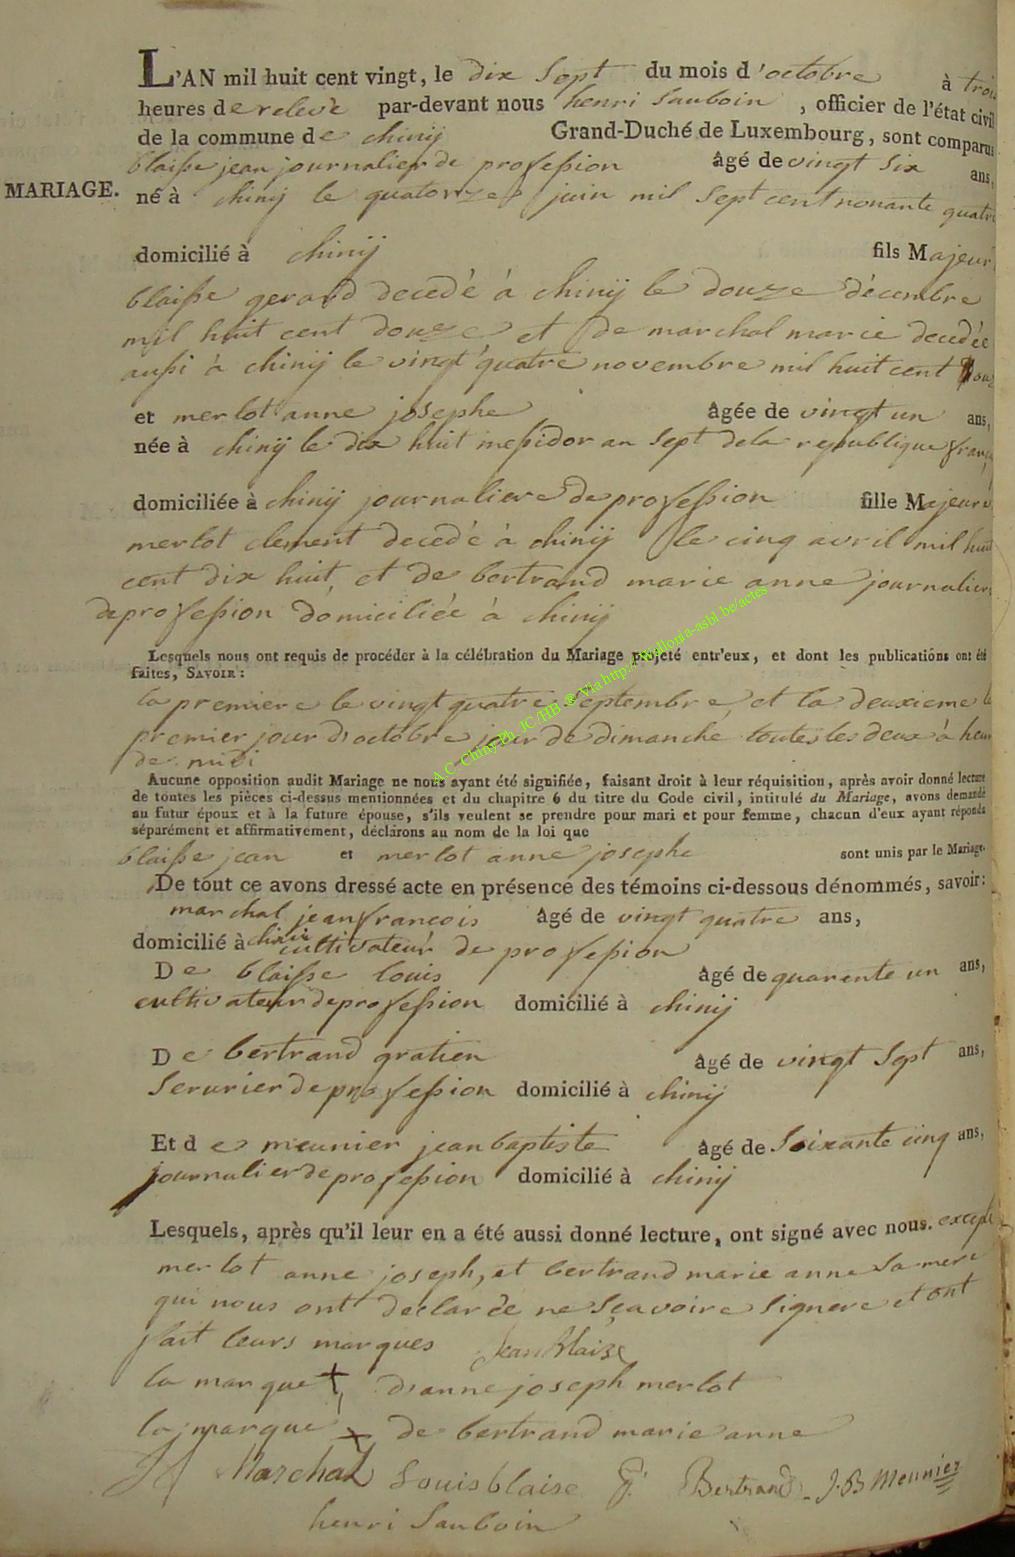 L'AN mil huit cent vingt, le dix Sept du mois d'octobre à trois
heures de relevé par-devant nous henri Sauboin , officier de l'état civil
de la commune de chinij Grand-Duché de Luxembourg, sont comparus
blaisse jean journalier de profession âgé de vingt six ans,
MARIAGE.
né à chinij le quatorze juin mil Sept cent nonante quatre
domicilié à chinij fils Majeur
blaisse gerard decedé à chinij le douze décembre
mil huit cent douze et de marchal marie decedée
aussi à chinij le vingt quatre novembre mil huit cent
et merlot anne josephe âgée de vingt un ans,
née à chinij le dix huit messidor an sept dela republique
domiciliée à chinij journaliere de profession fille Majeure
merlot clement decedé à chinij le cinq avril mil huit
cent dix huit et de bertrand marie anne journaliere
de profession domiciliée à chinij
Lesquels nous ont requis de procéder à la célébration du Mariage projeté entr'eux, et dont les publications ont été
faites, SAVOIR :
la premiere le vingt quatre Septembre, et la deuxieme le
premier jour d'octobre jour de dimanche toutes les deux à heure
de midi
A.C. Chiny Ph. JC /HB ® Via http://wallonia-asbl.be/actes
Aucune opposition audit Mariage ne nous ayant été signifiée, faisant droit à leur réquisition, après avoir donné lecture
de toutes les pièces ci-dessus mentionnées et du chapitre 6 du titre du Code civil, intitulé du Mariage, avons demandé
au futur époux et à la future épouse, s'ils veulent se prendre pour mari et pour femme, chacun d'eux ayant répondu
séparément et affirmativement, déclarons au nom de la loi que
blaisse jean et merlot anne josephe sont unis par le Mariage.
De tout ce avons dressé acte en présence des témoins ci-dessous dénommés, savoir:
marchal jean francois âgé de vingt quatre ans,
domicilié à chinij cultivateur de profession
De blaisse louis âgé de quarente un ans,
cultivateur de profession domicilié à chinij
De bertrand gratien âgé de vingt Sept ans,
Serurier de profession domicilié à chinij
Et de meunier jean baptiste âgé de Soixante cinq ans,
journalier de profession domicilié à chinij
Lesquels, après qu'il leur en a été aussi donné lecture, ont signé avec nous. excepté
merlot anne joseph, et bertrand marie anne sa mere
qui nous ont declarée ne sçavoire signere et ont
fait leurs marques Jean Blaize
la marque + d'anne joseph merlot
la marque x de bertrand marie anne
Marchal Louis blaise G. Bertrand J.B Meunier
henri Sauboin